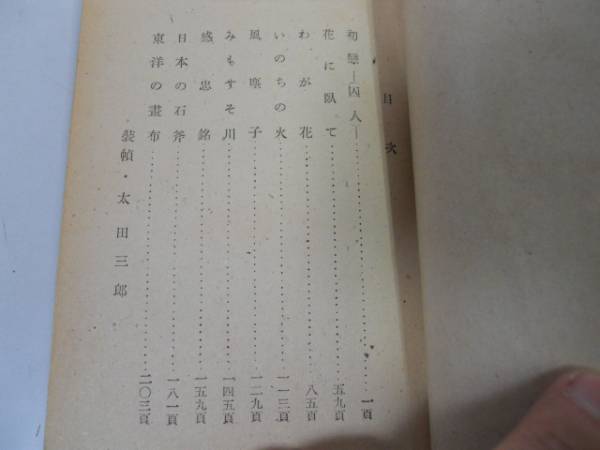 目次
初戀―囚人―……一頁
花に臥て……五九頁
わが花……八五頁
いのちの火……一一三頁
風塵子……一二九頁
みもすそ川……一四五頁
感忠銘……一五九頁
日本の石斧……一八一頁
東洋の畫布……二〇三頁
裝幀・太田三郎